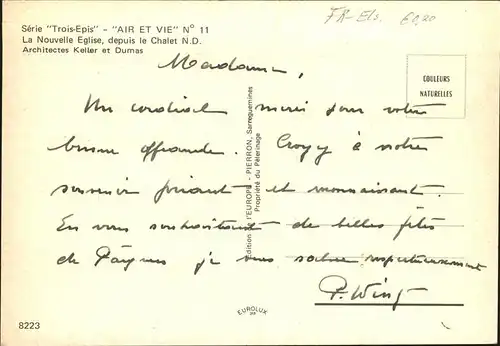 Série "Trois-Epis" - "AIR ET VIE" N° 11
La Nouvelle Eglise, depuis le Chalet N.D.
Architectes Keller et Dumas
FR-Els. €0,20
COULEURS
NATURELLES
Madame,
Un cordial merci pour votre
bonne offrande. Croyez à notre
souvenir priant et reconnaissant.
En vous souhaitant de belles fêtes
de Pâques je vous salue respectueusement
Edition de l'EUROPE - PIERRON, Sarreguemines
Propriété du Pèlerinage
EUROLUX
8223